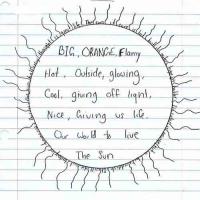 BIG, ORANGE, Flamy
Hot, Outside, glowing,
Cool, giving off light,
Nice, Giving us life.
Our world to live
The Sun